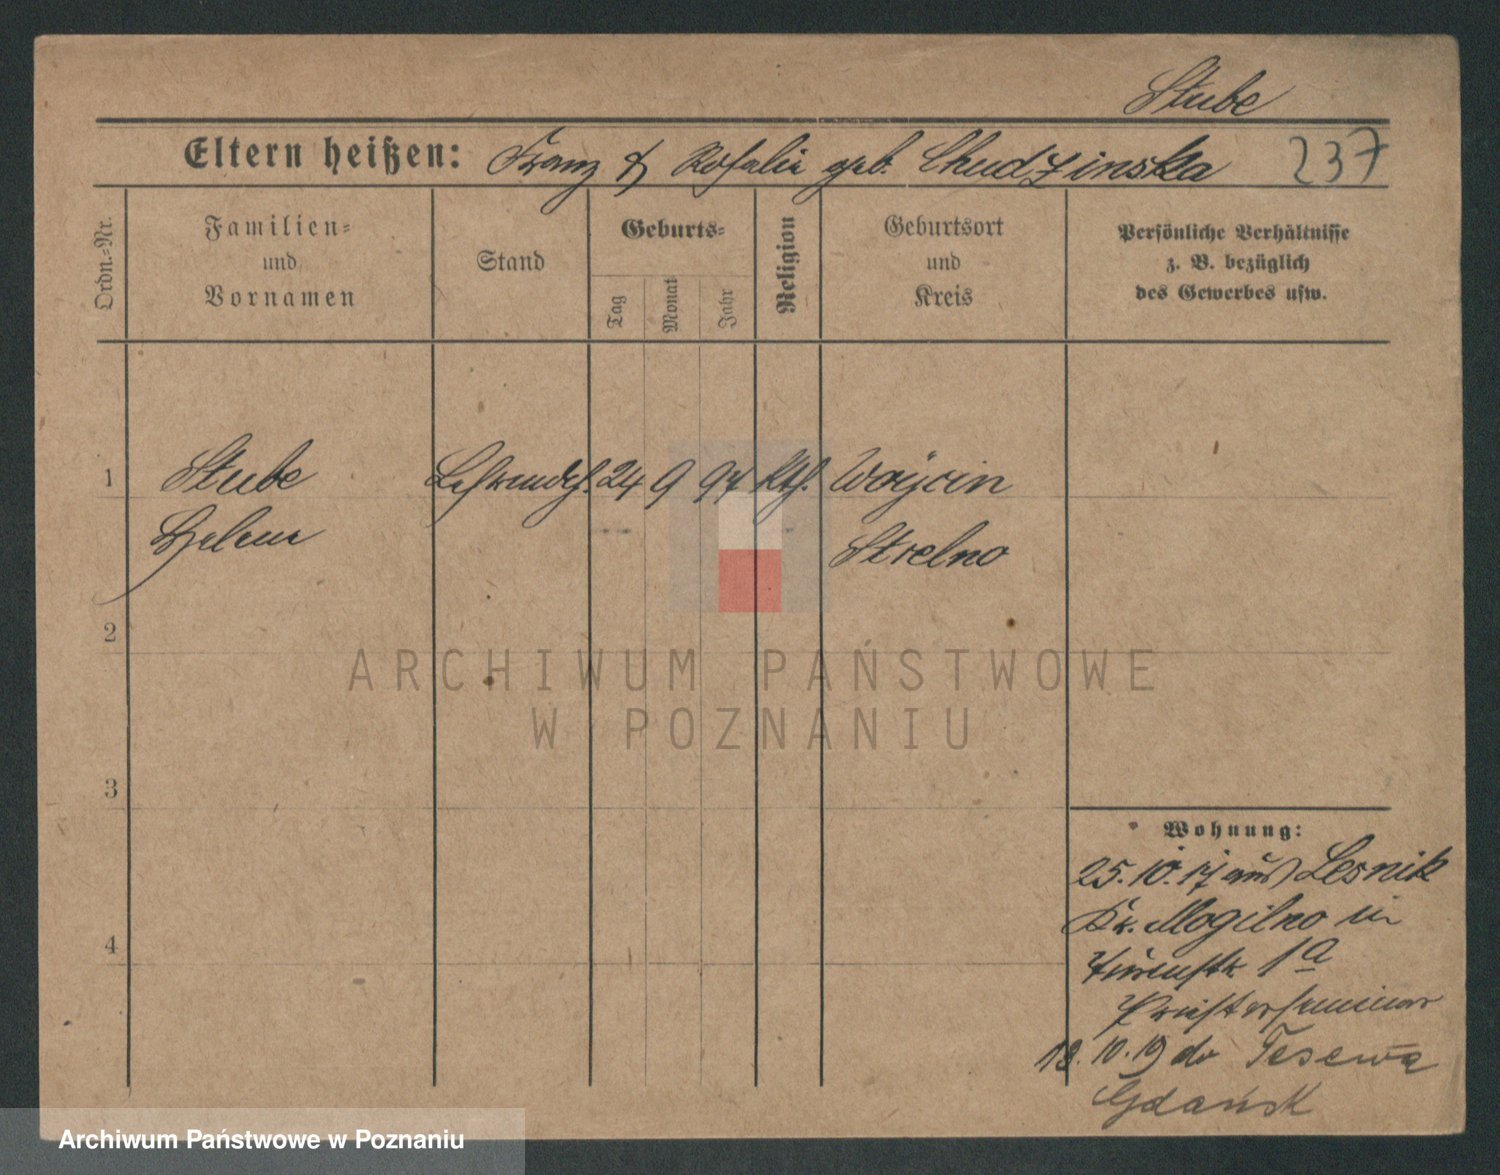 Stube
Eltern heißen: Franz & Rosalie geb. Chudzinska 237
Ordn.-Nr.
Familien-
und
Vornamen
Stand
Geburts-
Tag
Monat
Jahr
Religion
Geburtsort
und
Kreis
Persönliche Verhältnisse
z. B. bezüglich
des Gewerbes usw.
1 Stube 24 9 94 Kth. Woycin
Helene Strelno
2
3
4
Wohnung:
25.10.17 aus Lesnik
Kr. Mogilno in
1a
Priesterseminar
18.10.19 do Tesewa
Gdańsk
ARCHIWUM PAŃSTWOWE
W POZNANIU
Archiwum Państwowe w Poznaniu